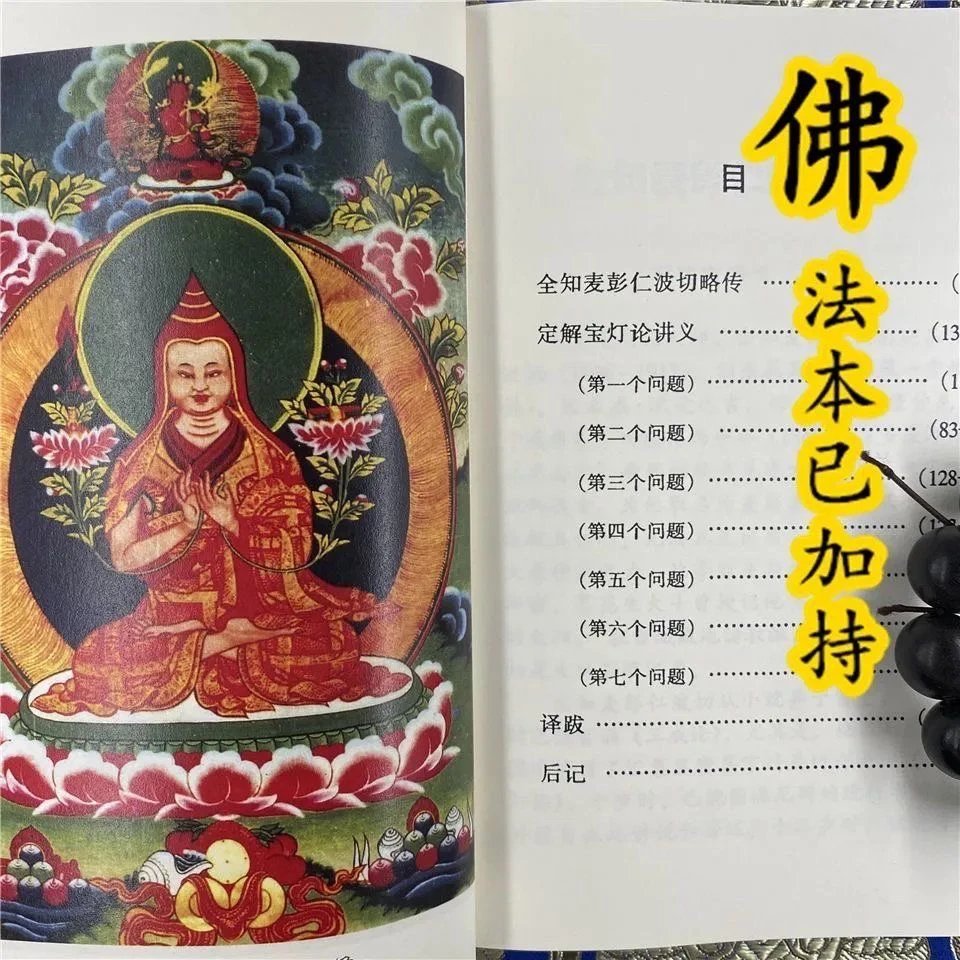 目
全知麦彭仁波切略传 ……………… (
定解宝灯论讲义 ……………… (13
(第一个问题) ……………… (1
(第二个问题) ……………… (83-
(第三个问题) ……………… (128-
(第四个问题) ………………
(第五个问题) ………………
(第六个问题) ………………
(第七个问题) ………………
译跋 ……………… (
后记 ………………
佛
法本已加持